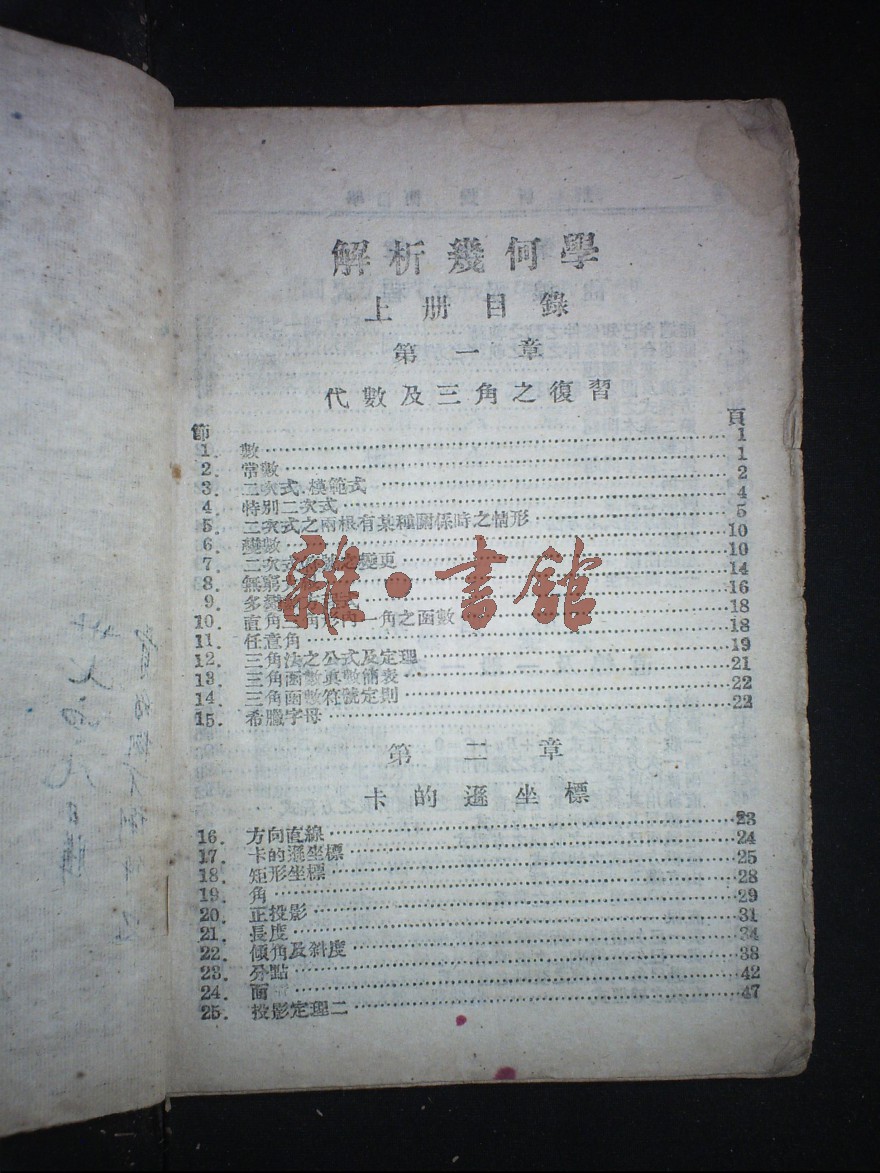 解析幾何學
上册目錄
第一章
代數及三角之復習
節 頁
1. 數 1
2. 常數 1
3. 二次式.模範式 2
4. 特別二次式 4
5. 二次式之兩根有某種關係時之情形 5
6. 變數 10
7. 二次式 變更 10
8. 無窮大 14
9. 多 16
10. 直角三角形內一角之函數 18
11. 任意角 18
12. 三角法之公式及定理 19
13. 三角函數眞數簡表 21
14. 三角函數符號定則 22
15. 希臘字母 22
第二章
卡的遜坐標
16. 方向直線 23
17. 卡的遜坐標 24
18. 矩形坐標 25
19. 角 28
20. 正投影 29
21. 長度 31
22. 傾角及斜度 34
23. 分點 38
24. 面 42
25. 投影定理二 47
雜·書館